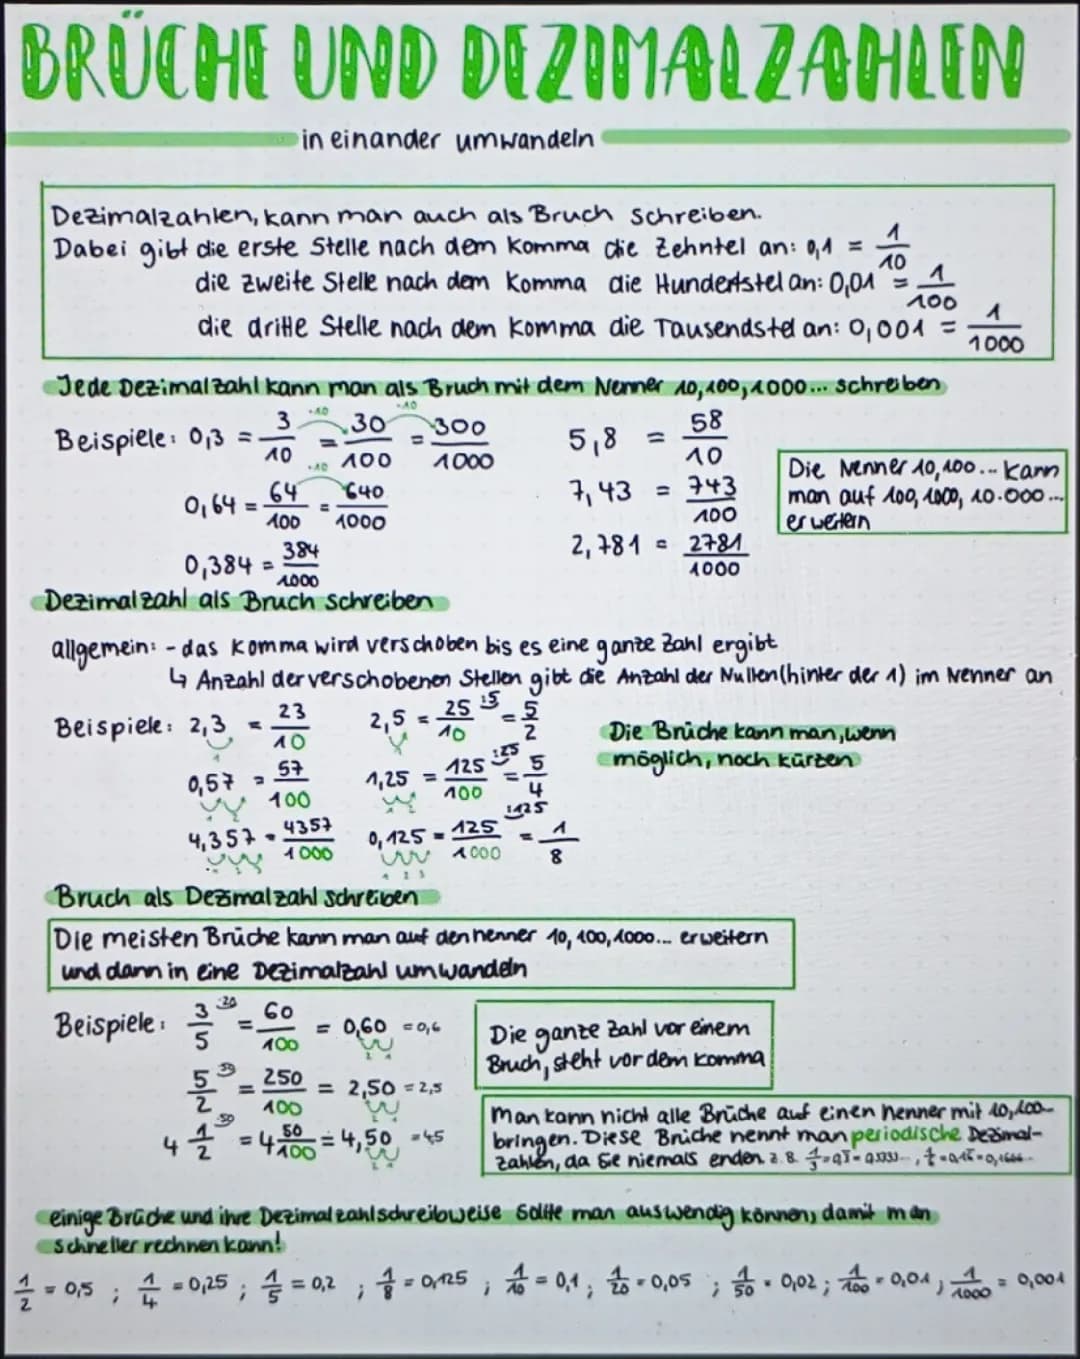 BRÜCHE UND DEZIMALZAHLEN
in einander umwandeln
Dezimalzahlen, kann man auch als Bruch schreiben.
Dabei gibt die erste Stelle nach dem Komma die Zehntel an: 0,1 = 1/10
die zweite Stelle nach dem Komma die Hundertstel an: 0,01 = 1/100
die dritte Stelle nach dem Komma die Tausendstel an: 0,001 = 1/1000
Jede Dezimalzahl kann man als Bruch mit dem Nenner 10,100,1000... schreiben
·10 ·10
Beispiele: 0,3 = 3/10 = 30/100 = 300/1000
·10
0,64 = 64/100 = 640/1000
0,384 = 384/1000
5,8 = 58/10
7,43 = 743/100
2,781 = 2781/1000
Die Nenner 10,100... kann
man auf 100, 1000, 10.000...
erweitern
Dezimalzahl als Bruch schreiben
allgemein: - das Komma wird verschoben bis es eine ganze Zahl ergibt
↳ Anzahl der verschobenen Stellen gibt die Anzahl der Nullen (hinter der 1) im Nenner an
Beispiele: 2,3 = 23/10
1
0,57 = 57/100
4,357 = 4357/1000
2,5 = 25/10 :5 = 5/2
1,25 = 125/100 :25 = 5/4
1 2
0,125 = 125/1000 :125 = 1/8
1 2 3
Die Brüche kann man, wenn
möglich, noch kürzen
Bruch als Dezimalzahl schreiben
Die meisten Brüche kann man auf den nenner 10, 100, 1000... erweitern
und dann in eine Dezimalzahl umwandeln
Beispiele: 3/5 ·20 = 60/100 = 0,60 = 0,6
2 1
5/2 = 250/100 = 2,50 = 2,5
2 1
4 1/2 ·50 = 4 50/100 = 4,50 = 4,5
2 1
Die ganze Zahl vor einem
Bruch, steht vor dem Komma
Man kann nicht alle Brüche auf einen nenner mit 10, 100...
bringen. Diese Brüche nennt man periodische Dezimal-
zahlen, da sie niemals enden. z.B. 1/3 = 0,3̅ = 0,3333..., 1/6 = 0,16̅ = 0,1666...
einige Brüche und ihre Dezimalzahlschreibweise sollte man auswendig können, damit man
schneller rechnen kann!
1/2 = 0,5 ; 1/4 = 0,25 ; 1/5 = 0,2 ; 1/8 = 0,125 ; 1/10 = 0,1 ; 1/20 = 0,05 ; 1/50 = 0,02 ; 1/100 = 0,01 ; 1/1000 = 0,001